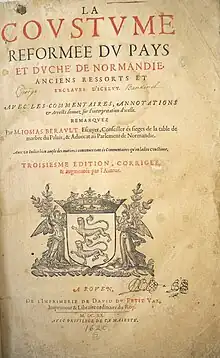 LA
COVSTVME
REFORMEE DV PAYS
ET DVCHE DE NORMANDIE,
ANCIENS RESSORTS ET
ENCLAVES D'ICELVY.
AVEC LES COMMENTAIRES, ANNOTATIONS
& Arrests donnez sur l'interpretation d'icelle.
REMARQVEZ
Par M. IOSIAS BERAVLT Escuyer, Conseiller és sieges de la table de
marbre du Palais, & Advocat au Parlement de Normandie.
TROISIESME EDITION, CORRIGEE,
& augmentée par l'Auteur.
A ROVEN,
DE L'IMPRIMERIE DE DAVID DV PETIT VAL,
Imprimeur & Libraire ordinaire du Roy.
M. DC. XX.
AVEC PRIVILEGE DE SA MAIESTE.
1620